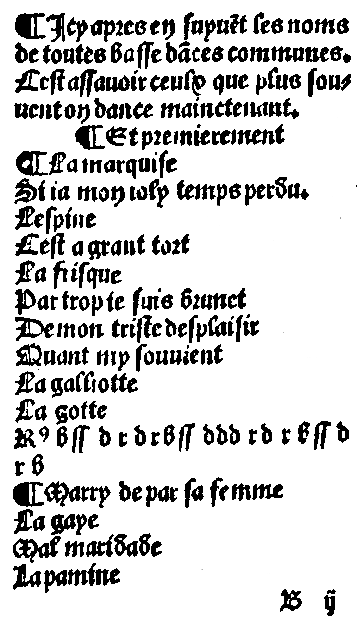 ¶ Icy apres en suyuẽt les noms
de toutes basse dãces communes.
Cest assauoir ceulx que plus sou-
uent on dance mainctenant.
¶ Et premierement
¶ La marquise
Si iay mon ioly temps perdu.
Lespine
Cest a grant tort
La frisque
Par trop ie suis brunet
De mon triste desplaisir
Quant my souuient
La galliotte
La gotte
R⁹ b ss d r d r b ss ddd r d r b ss d
r b
¶ Marry de par sa femme
La gaye
Mal maridade
La pamine
B ij